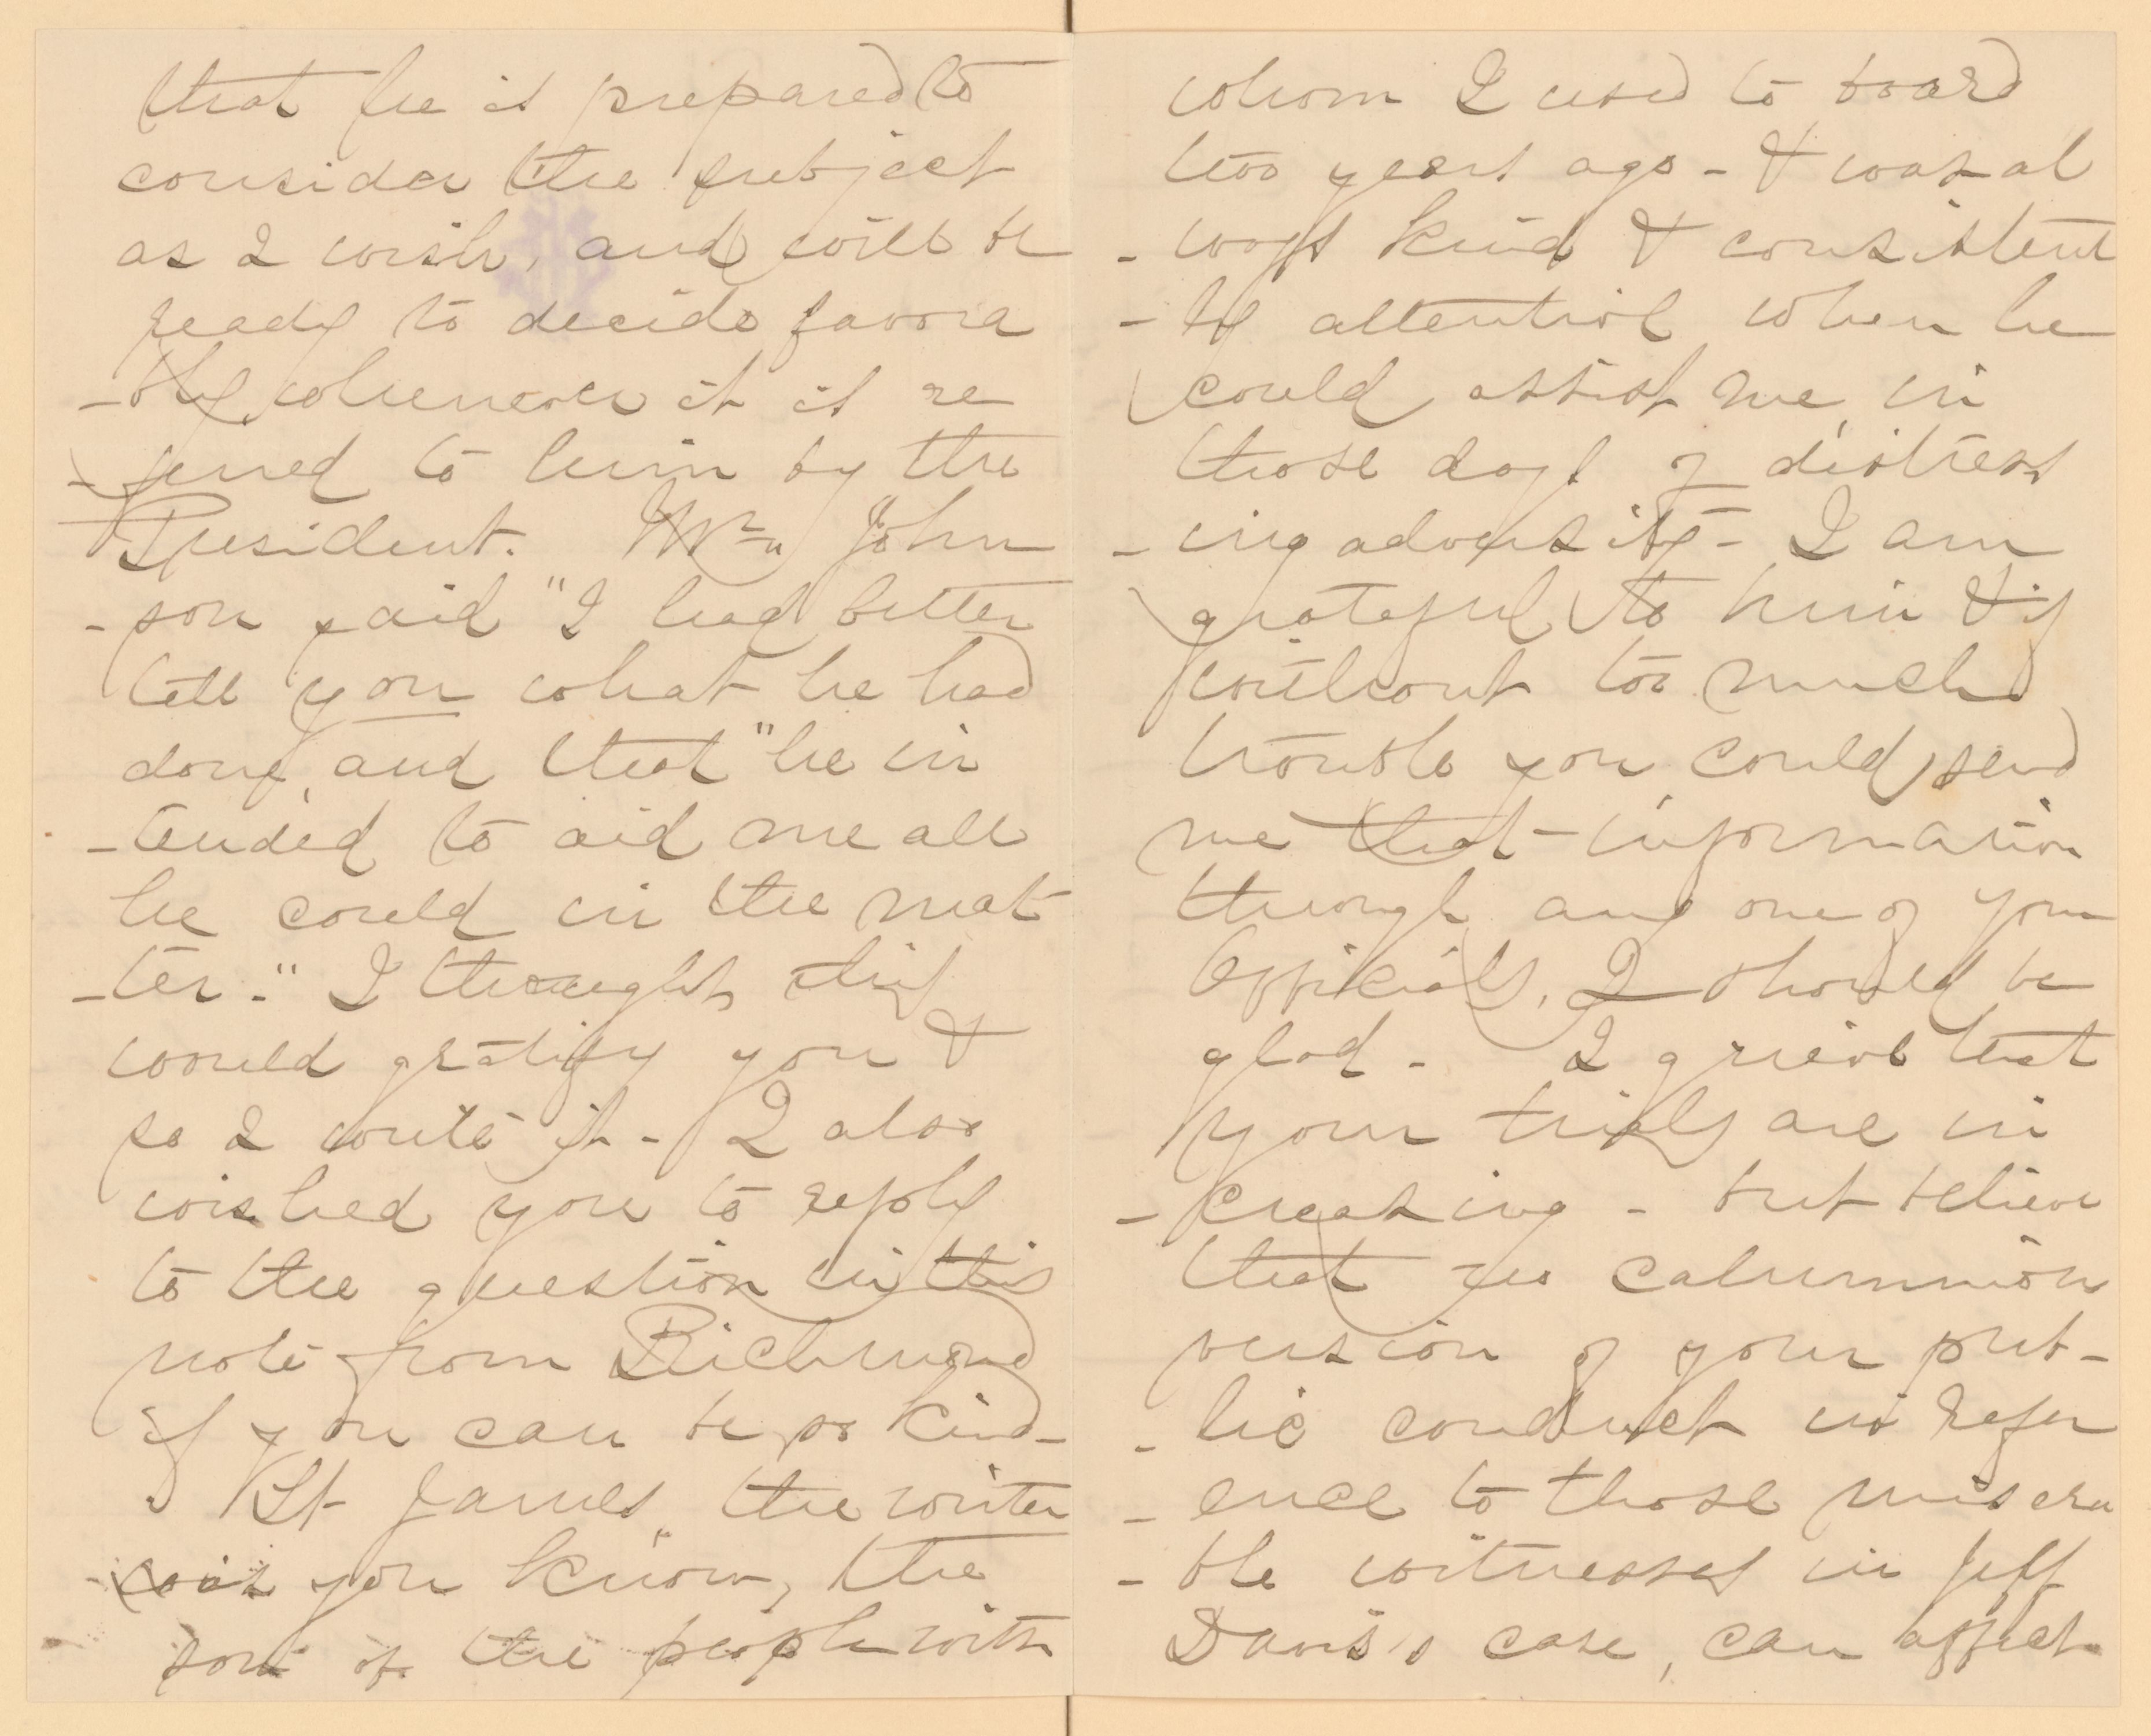 that he is prepared to
consider the subject
as I wish, and will be
ready to decide favora
-bly, whenever it is re
-ferred to him by the
President. Mr. John
-son said "I had better
tell you what he had
done, and that "he in
-tended to aid me all
he could in the mat
-ter." I thought this
would gratify you &
so I write it - I also
wished you to reply
to the question in this
note from Richmond
if you can be so kind -
St James, the writer
was you know, the
son of the people with
whom I used to board
two years ago - & was al
-ways kind & consistent
-ly attentive when he
could assist me, in
those days of distress
-ing adversity - I am
grateful to him & if
without too much
trouble you could send
me that information
through any one of your
Officials, I should be
glad - I grieve that
your trials are in
-creasing - but believe
that no calumnion
version of your pub-
-lic conduct in refer
-ence to those misera
-ble witnesses in Jeff
Davis's case, can affect